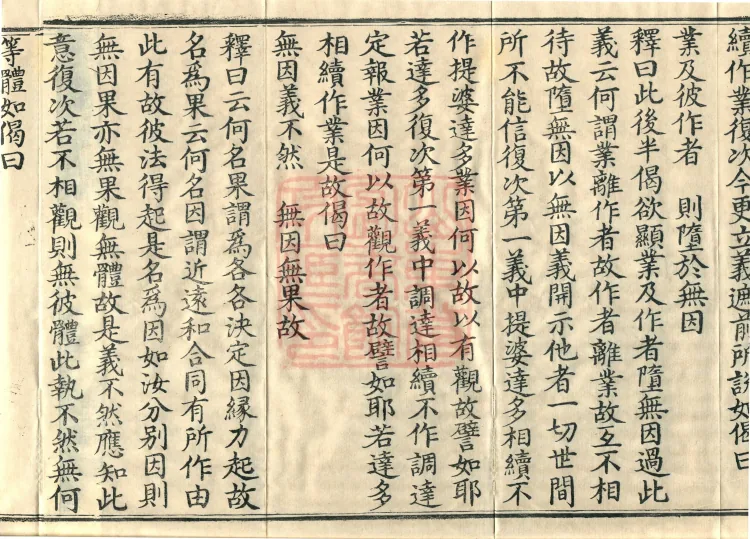 續作業復次今更立義遮前所說如偈曰
業及彼作者　則墮於無因
釋曰此後半偈欲顯業及作者墮無因過此
義云何謂業離作者故作者離業故互不相
待故墮無因以無因義開示他者一切世間
所不能信復次第一義中提婆達多相續不
作提婆達多業因何以故以有觀故譬如耶
若達多復次第一義中調達相續不作調達
定報業因何以故觀作者故譬如耶若達多
相續作業是故偈曰
無因義不然　無因無果故
釋曰云何名果謂為各各決定因緣力起故
名為果云何名因謂近遠和合同有所作由
此有故彼法得起是名為因如汝分別因則
無因果亦無果觀無體故是義不然應知此
意復次若不相觀則無彼體此執不然無何
等體如偈曰